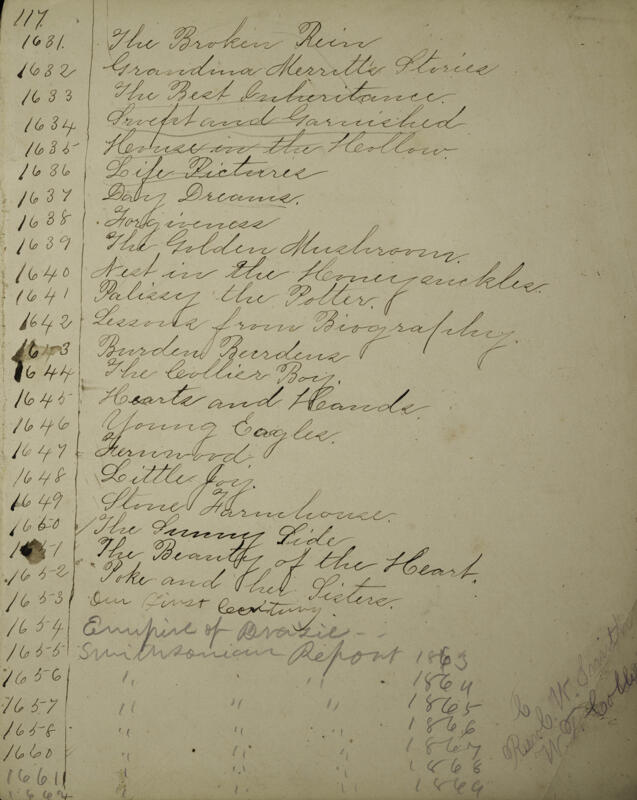 117.
1631. The Broken Rein
1632 Grandma Merritt's Stories
1633 The Best Inheritance.
1634 Swept and Garnished
1635 House in the Hollow.
1636 Life Pictures
1637 Day Dreams.
1638 Forgiveness
1639 The Golden Mushroom.
1640 Nest in the Honeysuckles.
1641 Palissy the Potter.
1642 Lessons from Biography.
1643 Burden Burdens
1644 The Collier Boy.
1645 Hearts and Hands.
1646 Young Eagles.
1647 Fernwood
1648 Little Joy.
1649 Stone Farmhouse.
1650 The Sunny Side
1651 The Beauty of the Heart.
1652 Poke and her Sisters.
1653 Our First Century.
1654 Empire of Brazil --
1655 Smithsonian Report 1863
1656 " " " 1864
1657 " " " 1865
1658 " " " 1866
1660 " " " 1867
1661 " " " 1868
1662 " " " 1869
C. W. Smith